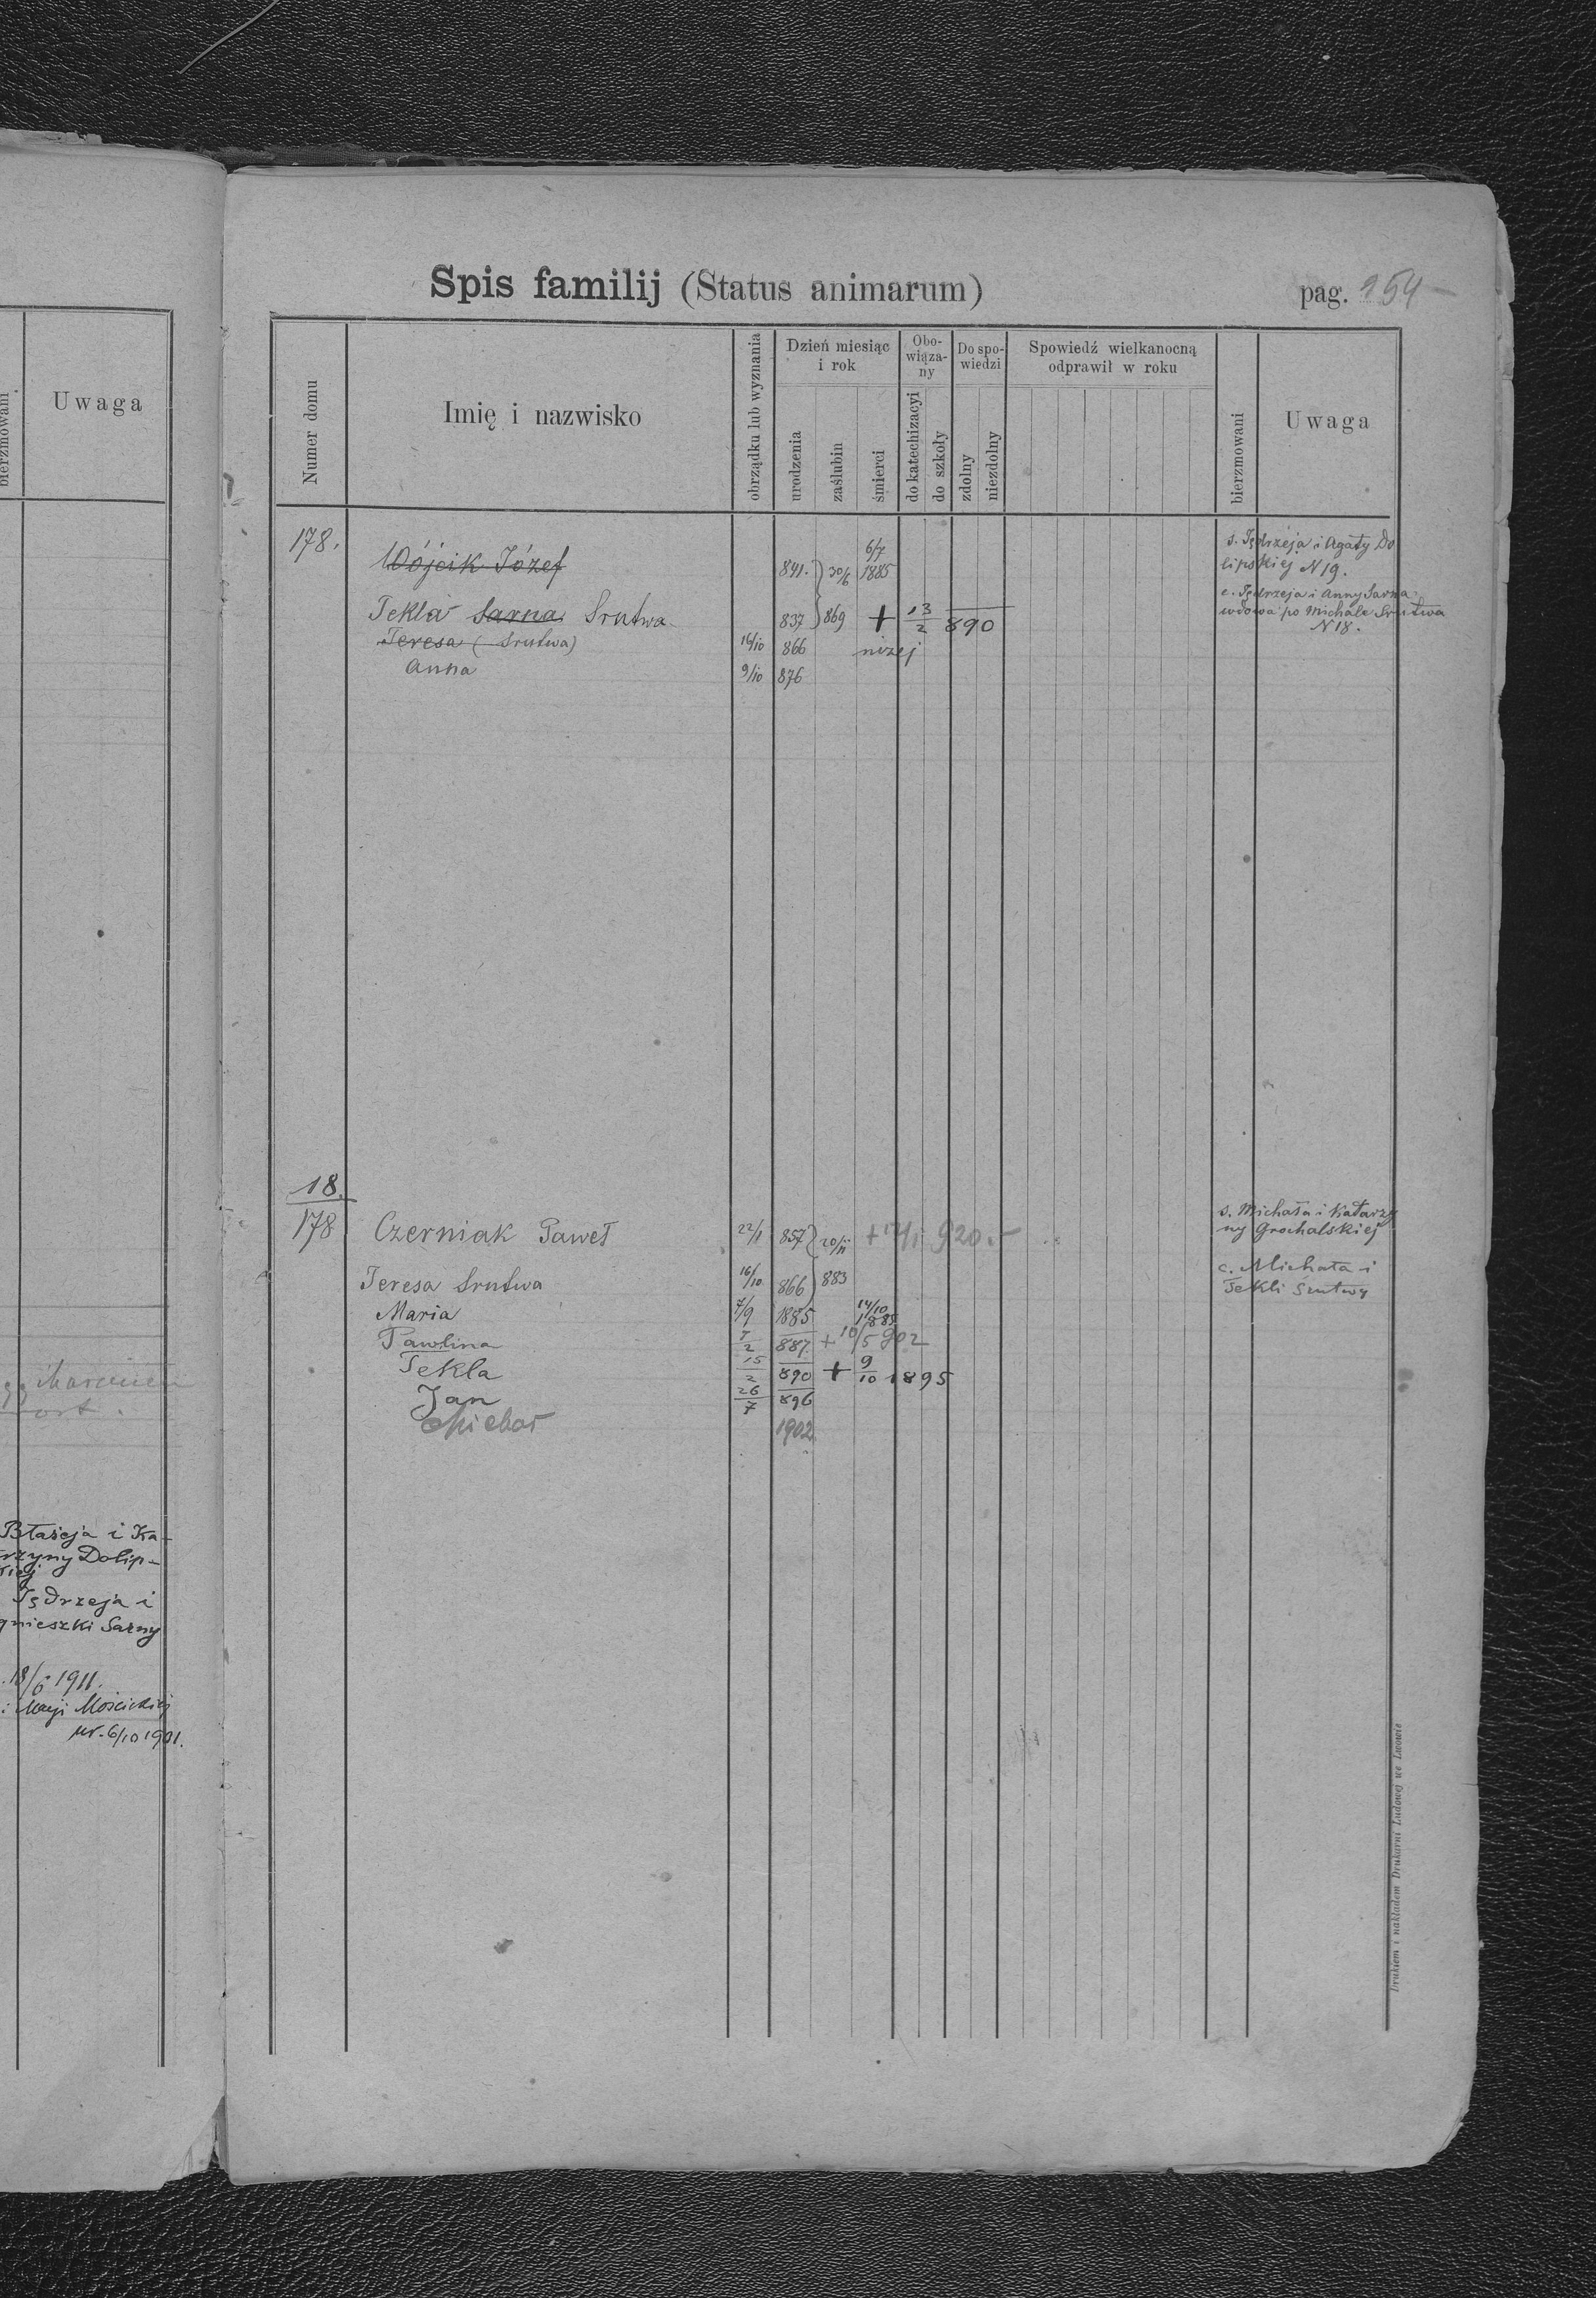 Uwaga
bierzmowani
Błażeja i Ka-
rzyny Dolip-
kiej
Jędrzeja i
gnieszki Sarny
18/6 1911.
Maryi Mościckiej
ur. 6/10 1901.
Spis familij (Status animarum)
pag. 154
Numer domu
Imię i nazwisko
obrządku lub wyznania
Dzień miesiąc i rok
urodzenia
zaślubin
śmierci
Obo-wiąza-ny
do katechizacyi
do szkoły
Do spo-wiedzi
zdolny
niezdolny
Spowiedź wielkanocną odprawił w roku
bierzmowani
Uwaga
178. Wójcik Józef 841. 30/6 6/7 1885 s. Jędrzeja i Agaty Do
lipskiej N 19.
Tekla Sarna Srutwa 837 869 + 13/2 890 c. Jędrzeja i Anny Sarna
wdowa po Michale Srutwa
N 18.
Teresa (Srutwa) 16/10 866 niżej
Anna 9/10 876
18.
178 Czerniak Paweł 22/1 857 20/11 + 920. s. Michała i Katarzy
ny Grochalskiej
Teresa Srutwa 16/10 866 883 c. Michała i
Tekli Srutwy
Maria 7/9 1885 14/10 1885
Pawlina 2 887 + 10/5 902
Tekla 15/2 890 + 9/10 1895
Jan 26/7 896
Michał 1902.
Drukiem i nakładem Drukarni Ludowej we Lwowie